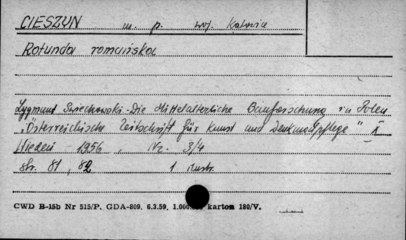 CIESZYN m. p. woj. Katowice
Rotunda romańska
Zygmunt Świechowski - Die Mittelalterliche Bauforschung in Polen
"Österreichische Zeitschrift für Kunst und Denkmalpflege" X
Wiedeń - 1956, Nr. 3/4
Str. 81, 82 1 ilustr.
CWD B-15b Nr 515/P. GDA-809. 6.3.59. 1.000. karton 180/V.